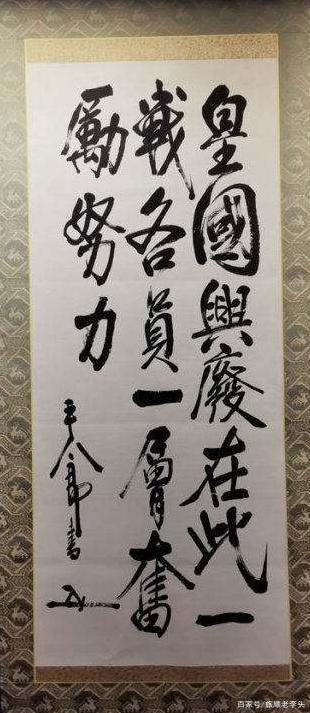 皇國興廢在此一
戦各員一層奮
勵努力
平八郎書
百家号/旅顺老李头